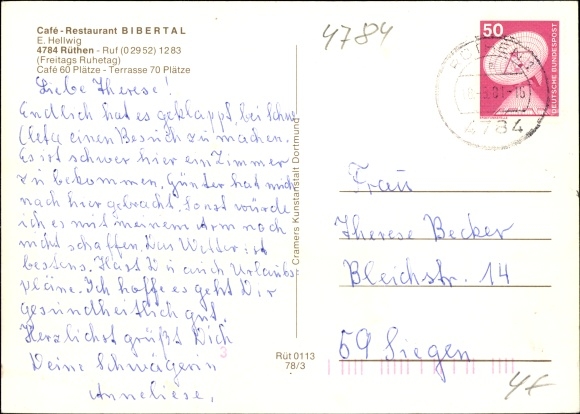 Café - Restaurant BIBERTAL
E. Hellwig
4784 Rüthen - Ruf (0 29 52) 12 83
(Freitags Ruhetag)
Café 60 Plätze - Terrasse 70 Plätze
4784
Liebe Therese!
Endlich hat es geklappt, bei Schw.
Ueta einen Besuch zu machen.
Es ist schwer hier ein Zimmer
zu bekommen. Günter hat mich
nach hier gebracht. Sonst würde
ich es mit meinem Arm noch
nicht schaffen. Das Wetter ist
bestens. Hast Du auch Urlaubs-
pläne. Ich hoffe es geht Dir
gesundheitlich gut.
Herzlichst grüßt Dich
Deine Schwägerin
Anneliese.
Cramers Kunstanstalt Dortmund
Rüt 0113
78/3
3
50
DEUTSCHE BUNDESPOST
4784
Frau
Therese Becker
Bleichstr. 14
59 Siegen